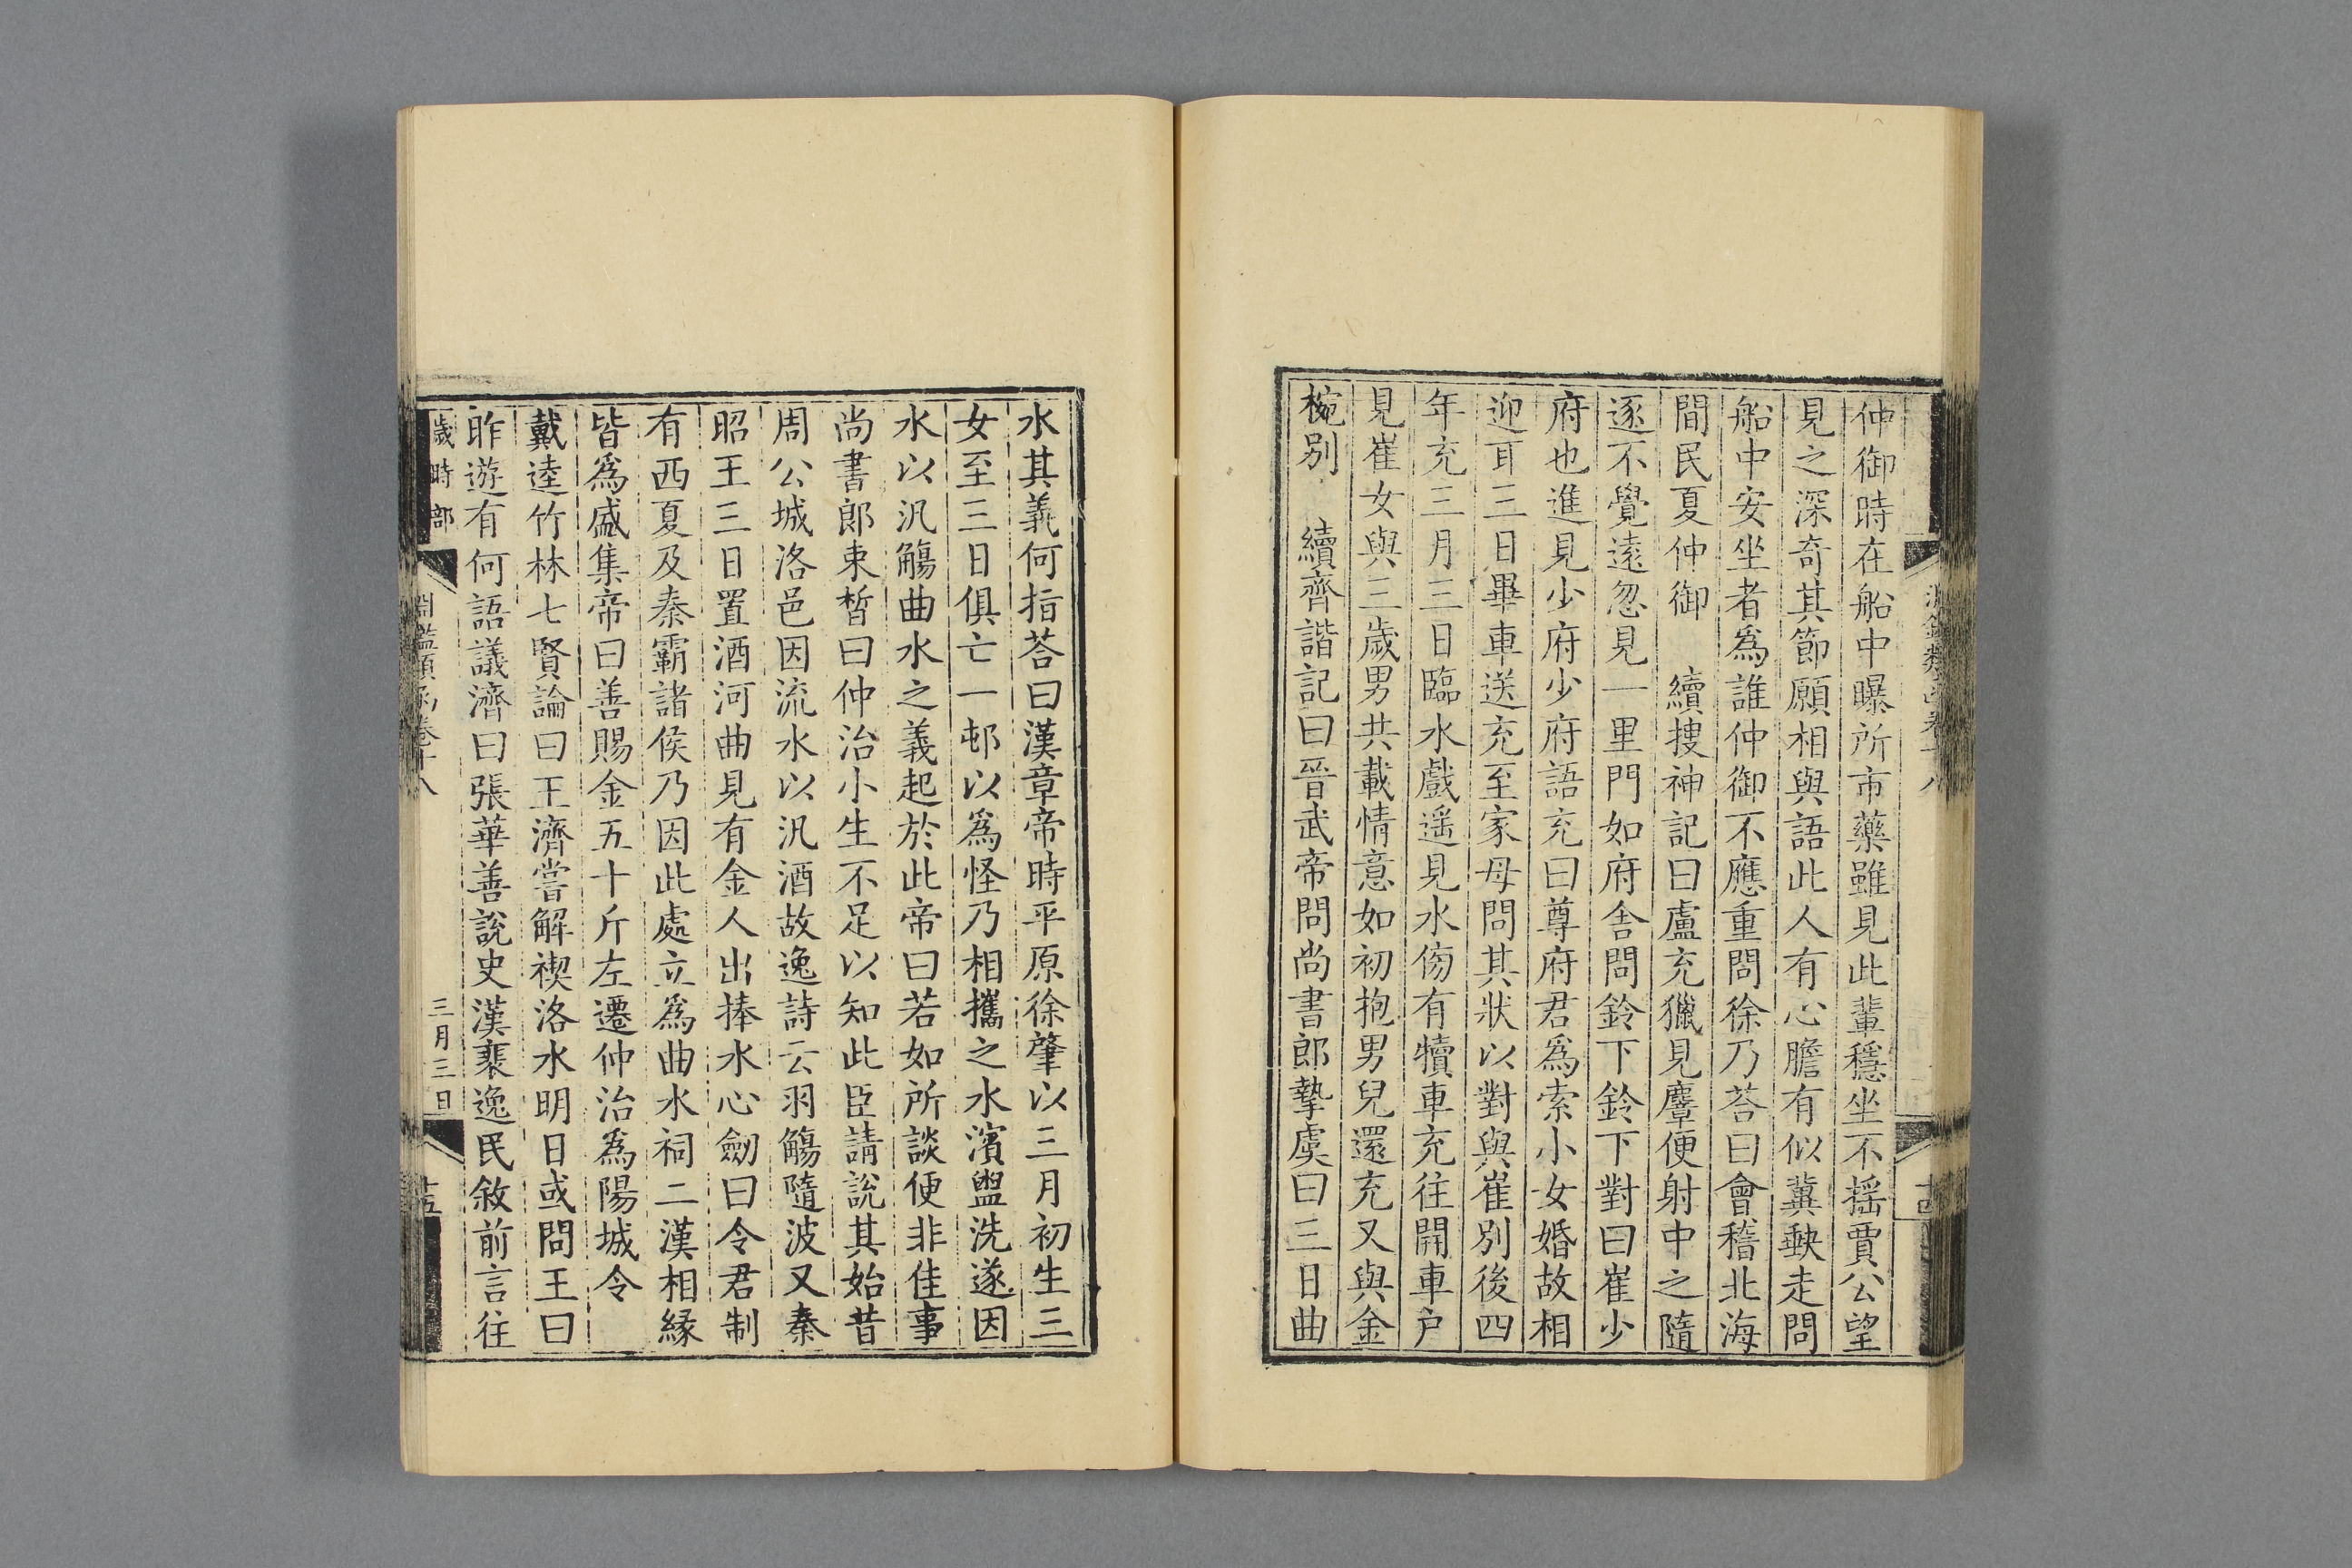 仲御時在船中曝所市藥雖見此輩穩坐不搖賈公望
見之深奇其節願相與語此人有心膽有似冀缺走問
船中安坐者爲誰仲御不應重問徐乃荅曰會稽北海
間民夏仲御　續搜神記曰盧充獵見麞便射中之隨
逐不覺遠忽見一里門如府舍問鈴下鈴下對曰崔少
府也進見少府少府語充曰尊府君爲索小女婚故相
迎耳三日畢車送充至家母問其狀以對與崔別後四
年充三月三日臨水戲遥見水傍有犢車充往開車户
見崔女與三歲男共載情意如初抱男兒還充又與金
椀別　續齊諧記曰晉武帝問尚書郎摯虞曰三日曲
水其義何指荅曰漢章帝時平原徐肇以三月初生三
女至三日俱亡一邨以爲怪乃相攜之水濱盥洗遂因
水以汎觴曲水之義起於此帝曰若如所談便非佳事
尚書郎束晳曰仲治小生不足以知此臣請說其始昔
周公城洛邑因流水以汎酒故逸詩云羽觴隨波又秦
昭王三日置酒河曲見有金人出捧水心劒曰令君制
有西夏及秦霸諸侯乃因此處立爲曲水祠二漢相緣
皆爲盛集帝曰善賜金五十斤左遷仲治爲陽城令
戴逵竹林七賢論曰王濟嘗解禊洛水明日或問王曰
昨遊有何語議濟曰張華善說史漢裴逸民敘前言往
歲時部
淵鑑類函卷十八
三月三日
十五